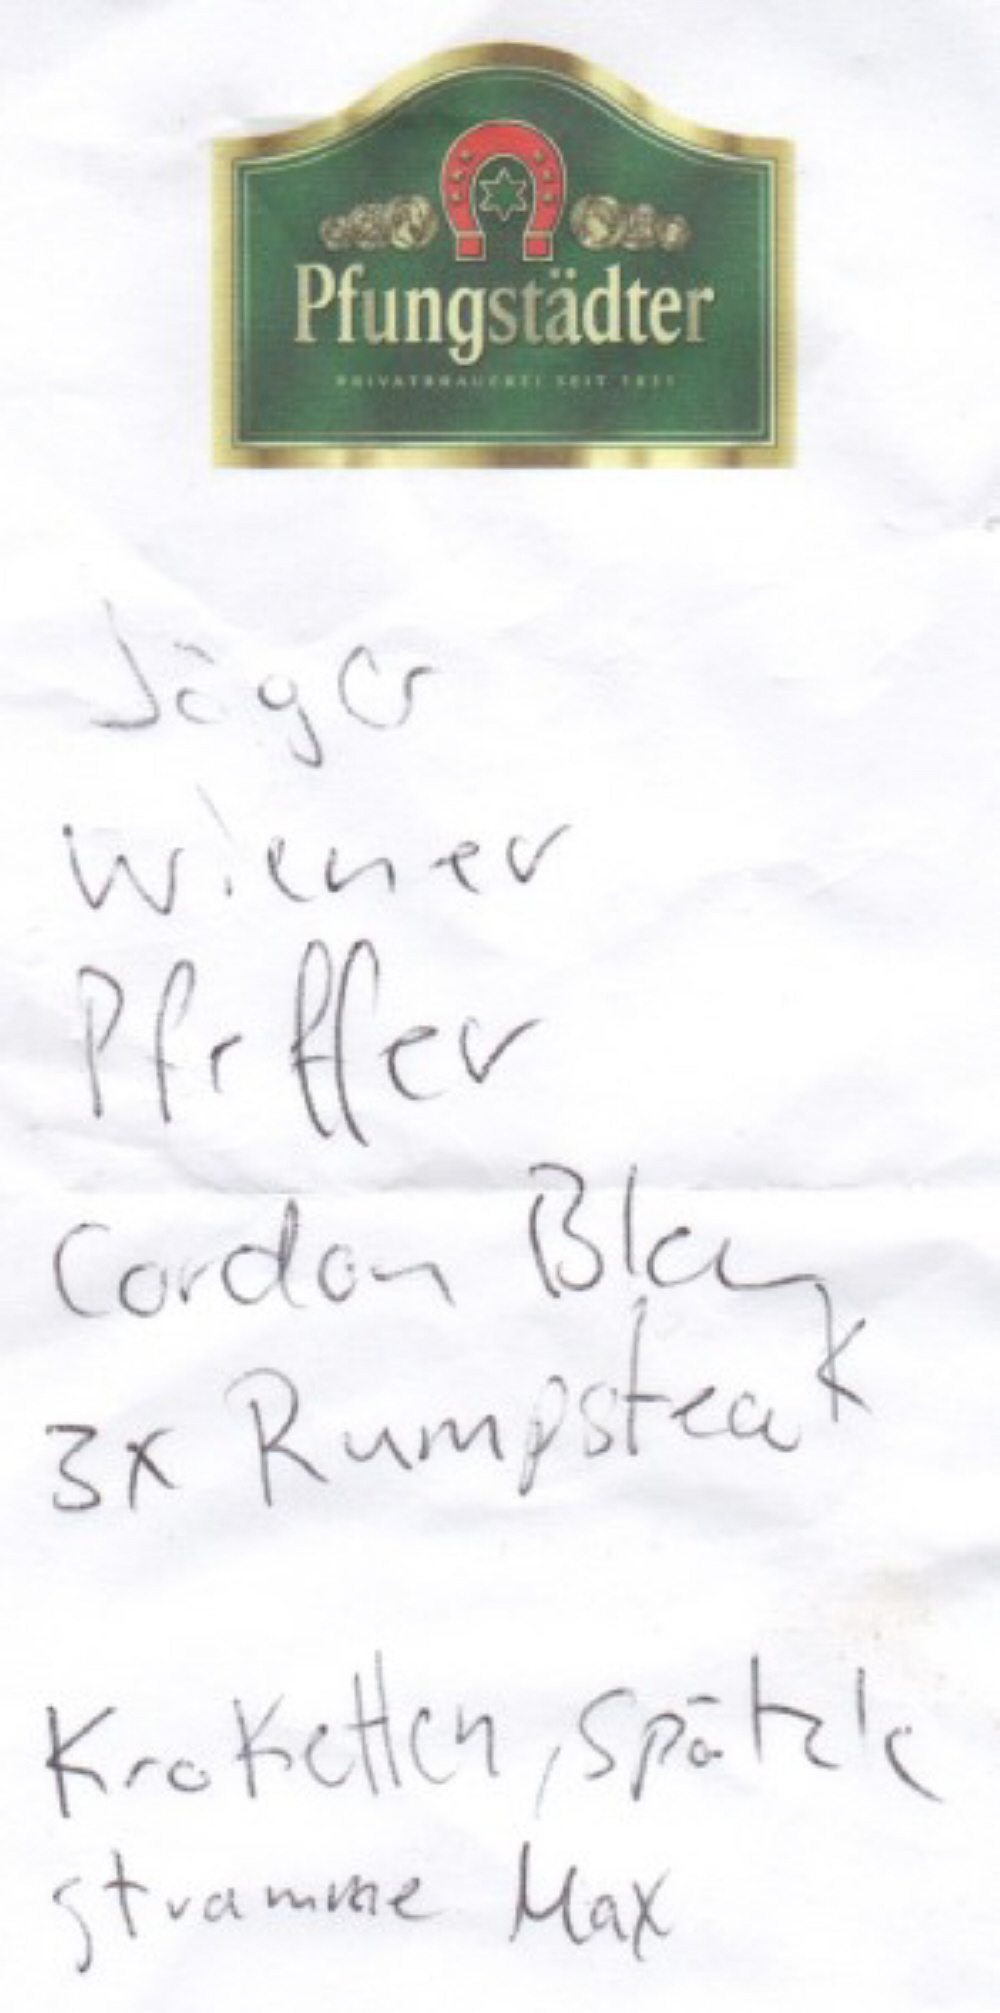 Pfungstädter
PRIVATBRAUEREI SEIT 1831
Jäger
Wiener
Pfeffer
Cordon Bleu
3x Rumpsteak
Kroketten, Spätzle
stramme Max